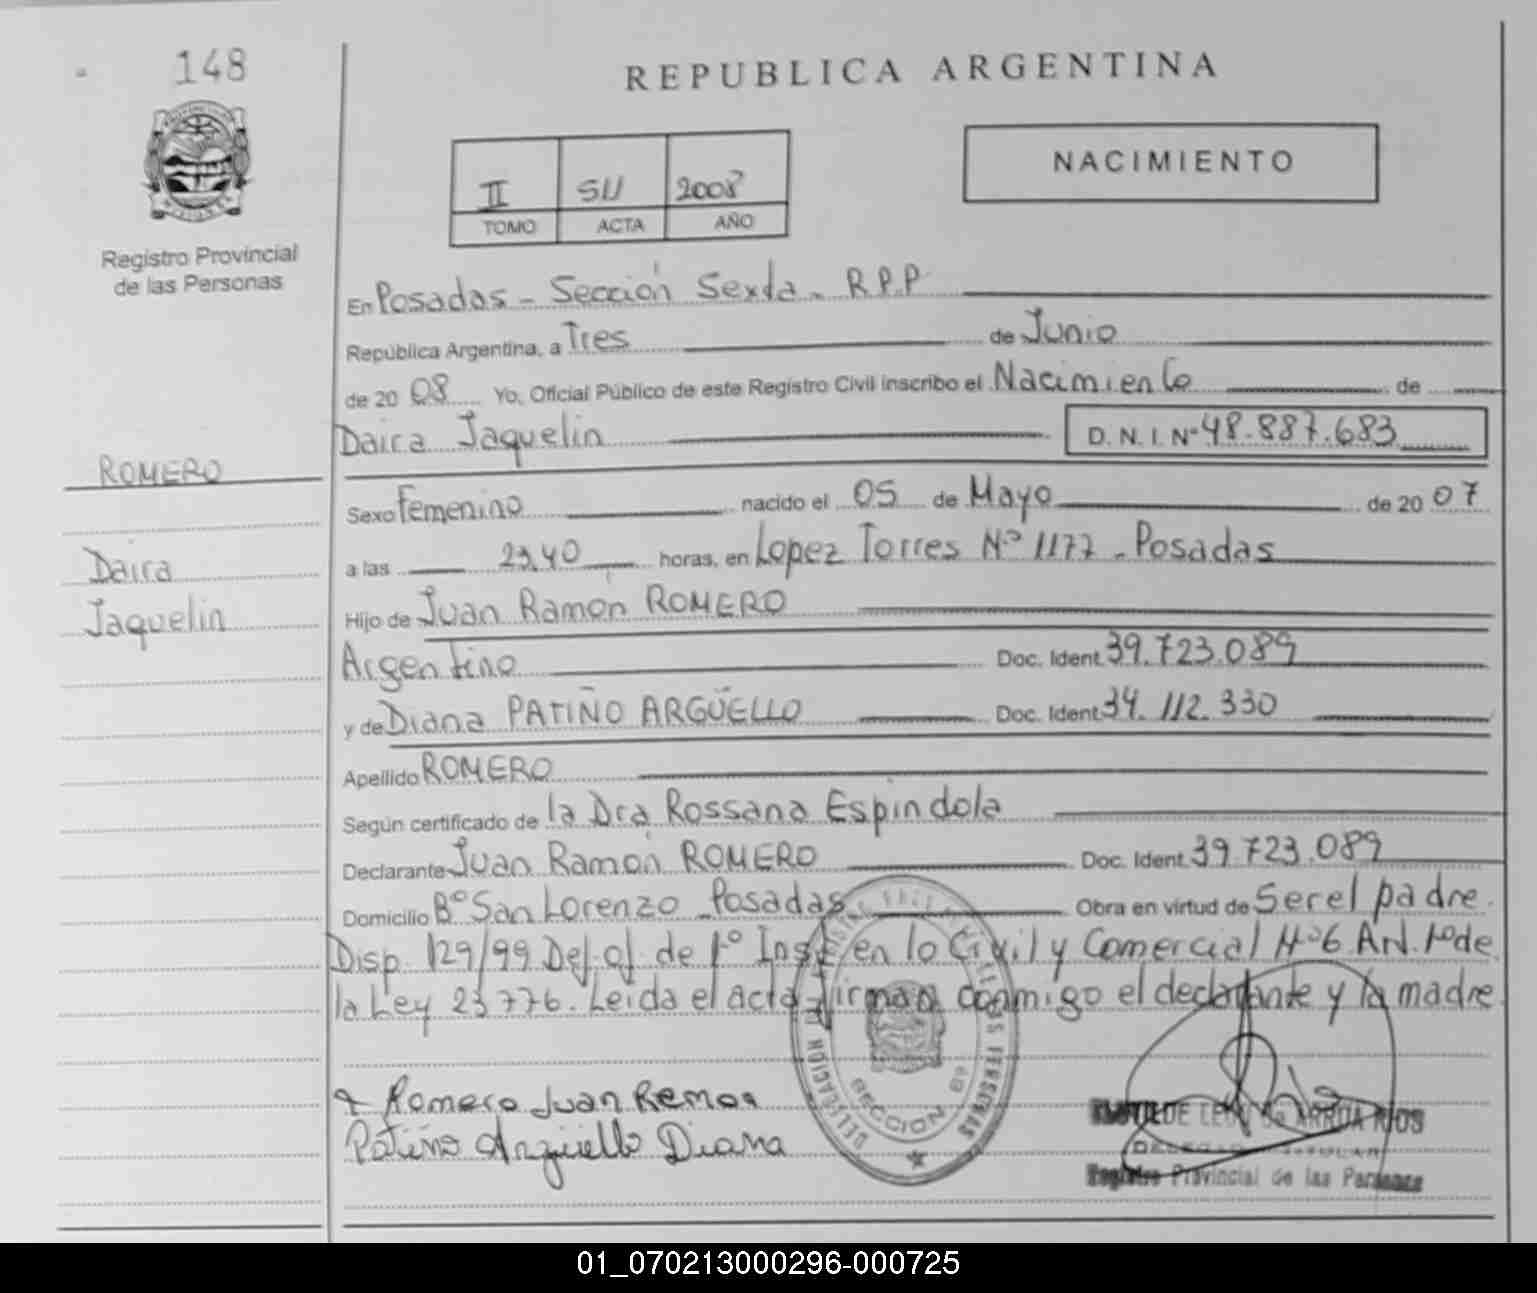 148
REPUBLICA ARGENTINA
NACIMIENTO
II 2008
TOMO ACTA AÑO
Registro Provincial
de las Personas
En Posadas - Sección Sexta - R.P.P
República Argentina, a Tres de Junio
de 20 08 Yo, Oficial Público de este Registro Civil inscribo el Nacimiento de
Daira Jaquelin D. N. I. Nº 48.887.683
ROMERO
Daira
Jaquelin
Sexo Femenino nacido el 05 de Mayo de 20 07
a las 23,40 horas, en Lopez Torres Nº 1177 - Posadas
Hijo de Juan Ramón ROMERO
Argentino Doc. Ident. 39.723.089
y de Diana PATIÑO ARGÜELLO Doc. Ident. 34.112.330
Apellido ROMERO
Según certificado de la Dra Rossana Espindola
Declarante Juan Ramón ROMERO Doc. Ident. 39.723.089
Domicilio Bº San Lorenzo - Posadas Obra en virtud de Ser el padre.
Disp. 129/99 Def. of. de 1º Inst en lo Civil y Comercial Nº6 Art. 1º de
la Ley 23776. Leida el acta firman conmigo el declarante y la madre.
Romero Juan Ramon
Patiño Argüello Diana
DELEGACION SECCION 6ª
ARRUA RIOS
Registro Provincial de las Personas
01_070213000296-000725